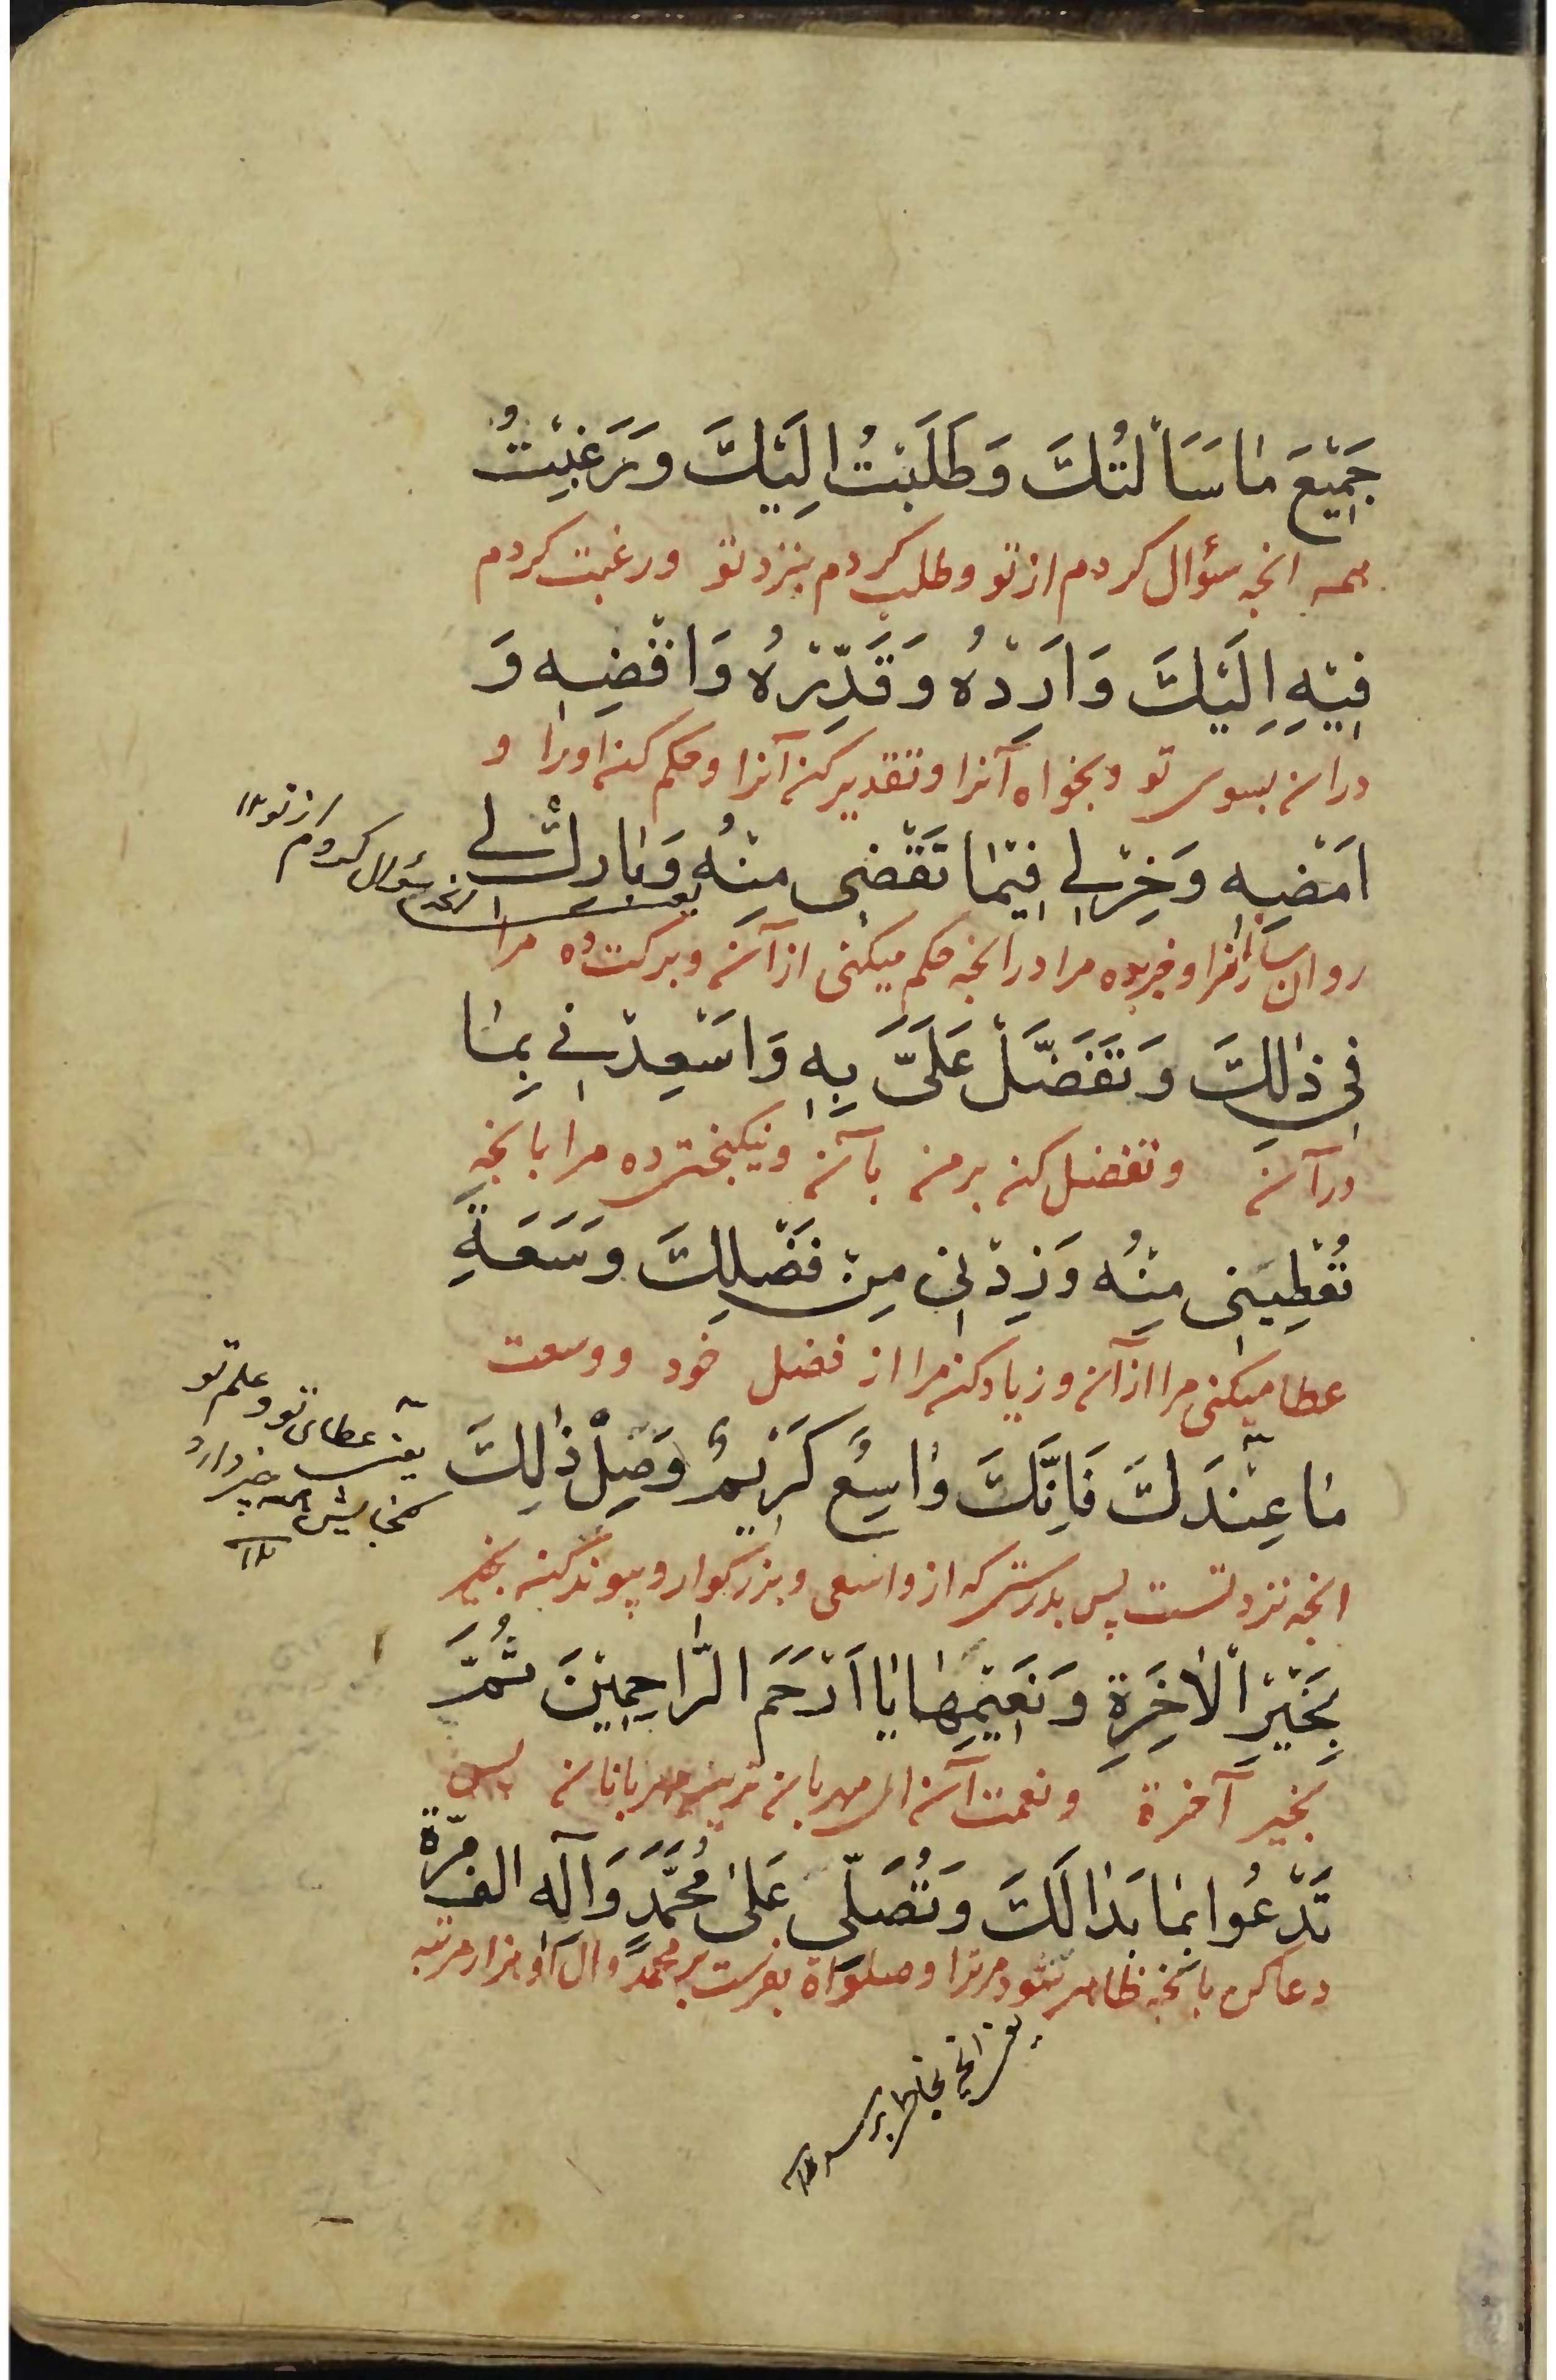 جَمِيْعَ مٰا سَاَلْتُكَ وَطَلَبْتُ اِلَيْكَ وَرَغِبْتُ
همه انچه سؤال کردم از تو و طلب کردم بنزد تو و رغبت کردم
فِيْهِ اِلَيْكَ وَاَرِدْهُ وَقَدِّرْهُ وَاقْضِهِ وَ
در آن بسوی تو و بخواه آنرا و تقدیر کن آنرا و حکم کن اورا و
اَمْضِهِ وَخِرْلِي فِيْمٰا تَقْضِى مِنْهُ وَبٰارِكْ لِي
یعنی انچه سؤال کردم از تو ۱۲
روان ساز انرا و خیر ده مرا در انچه حکم میکنی از آن و برکت ده مرا
فِي ذٰلِكَ وَتَفَضَّلْ عَلَىَّ بِهِ وَاَسْعِدْنِي بِمٰا
در آن و تفضل کن بر من بآن و نیکبختی ده مرا بانچه
تُعْطِيْنِى مِنْهُ وَزِدْنِي مِنْ فَضْلِكَ وَسَعَةِ
عطا میکنی مرا از آن و زیاد کن مرا از فضل خود و وسعت
مٰا عِنْدَكَ فَاِنَّكَ وٰاسِعٌ كَرِيْمٌ وَصِلْ ذٰلِكَ
یعنی عطای تو و علم تو
گنجایش همه چیز دارد
۱۲
انچه نزد تست پس بدرستی که از واسعی و بزرگوار و پیوند کن بخیر
بِخَيْرِ اْلاٰخِرَةِ وَنَعِيْمِهٰا يٰا اَرْحَمَ الرّٰاحِمِيْنَ ثُمَّ
بخیر آخرة و نعمت آن ای مهربان ترین مهربانان پس
تَدْعُوا بِمٰا بَدٰا لَكَ وَتُصَلِّى عَلىٰ مُحَمَّدٍ وَآلِهِ الف مَرّة
دعا کن بانچه ظاهر شود مر ترا و صلواة بفرست بر محمد و آل او هزار مرتبه
یعنی انچه بخاطر برسد ۱۲